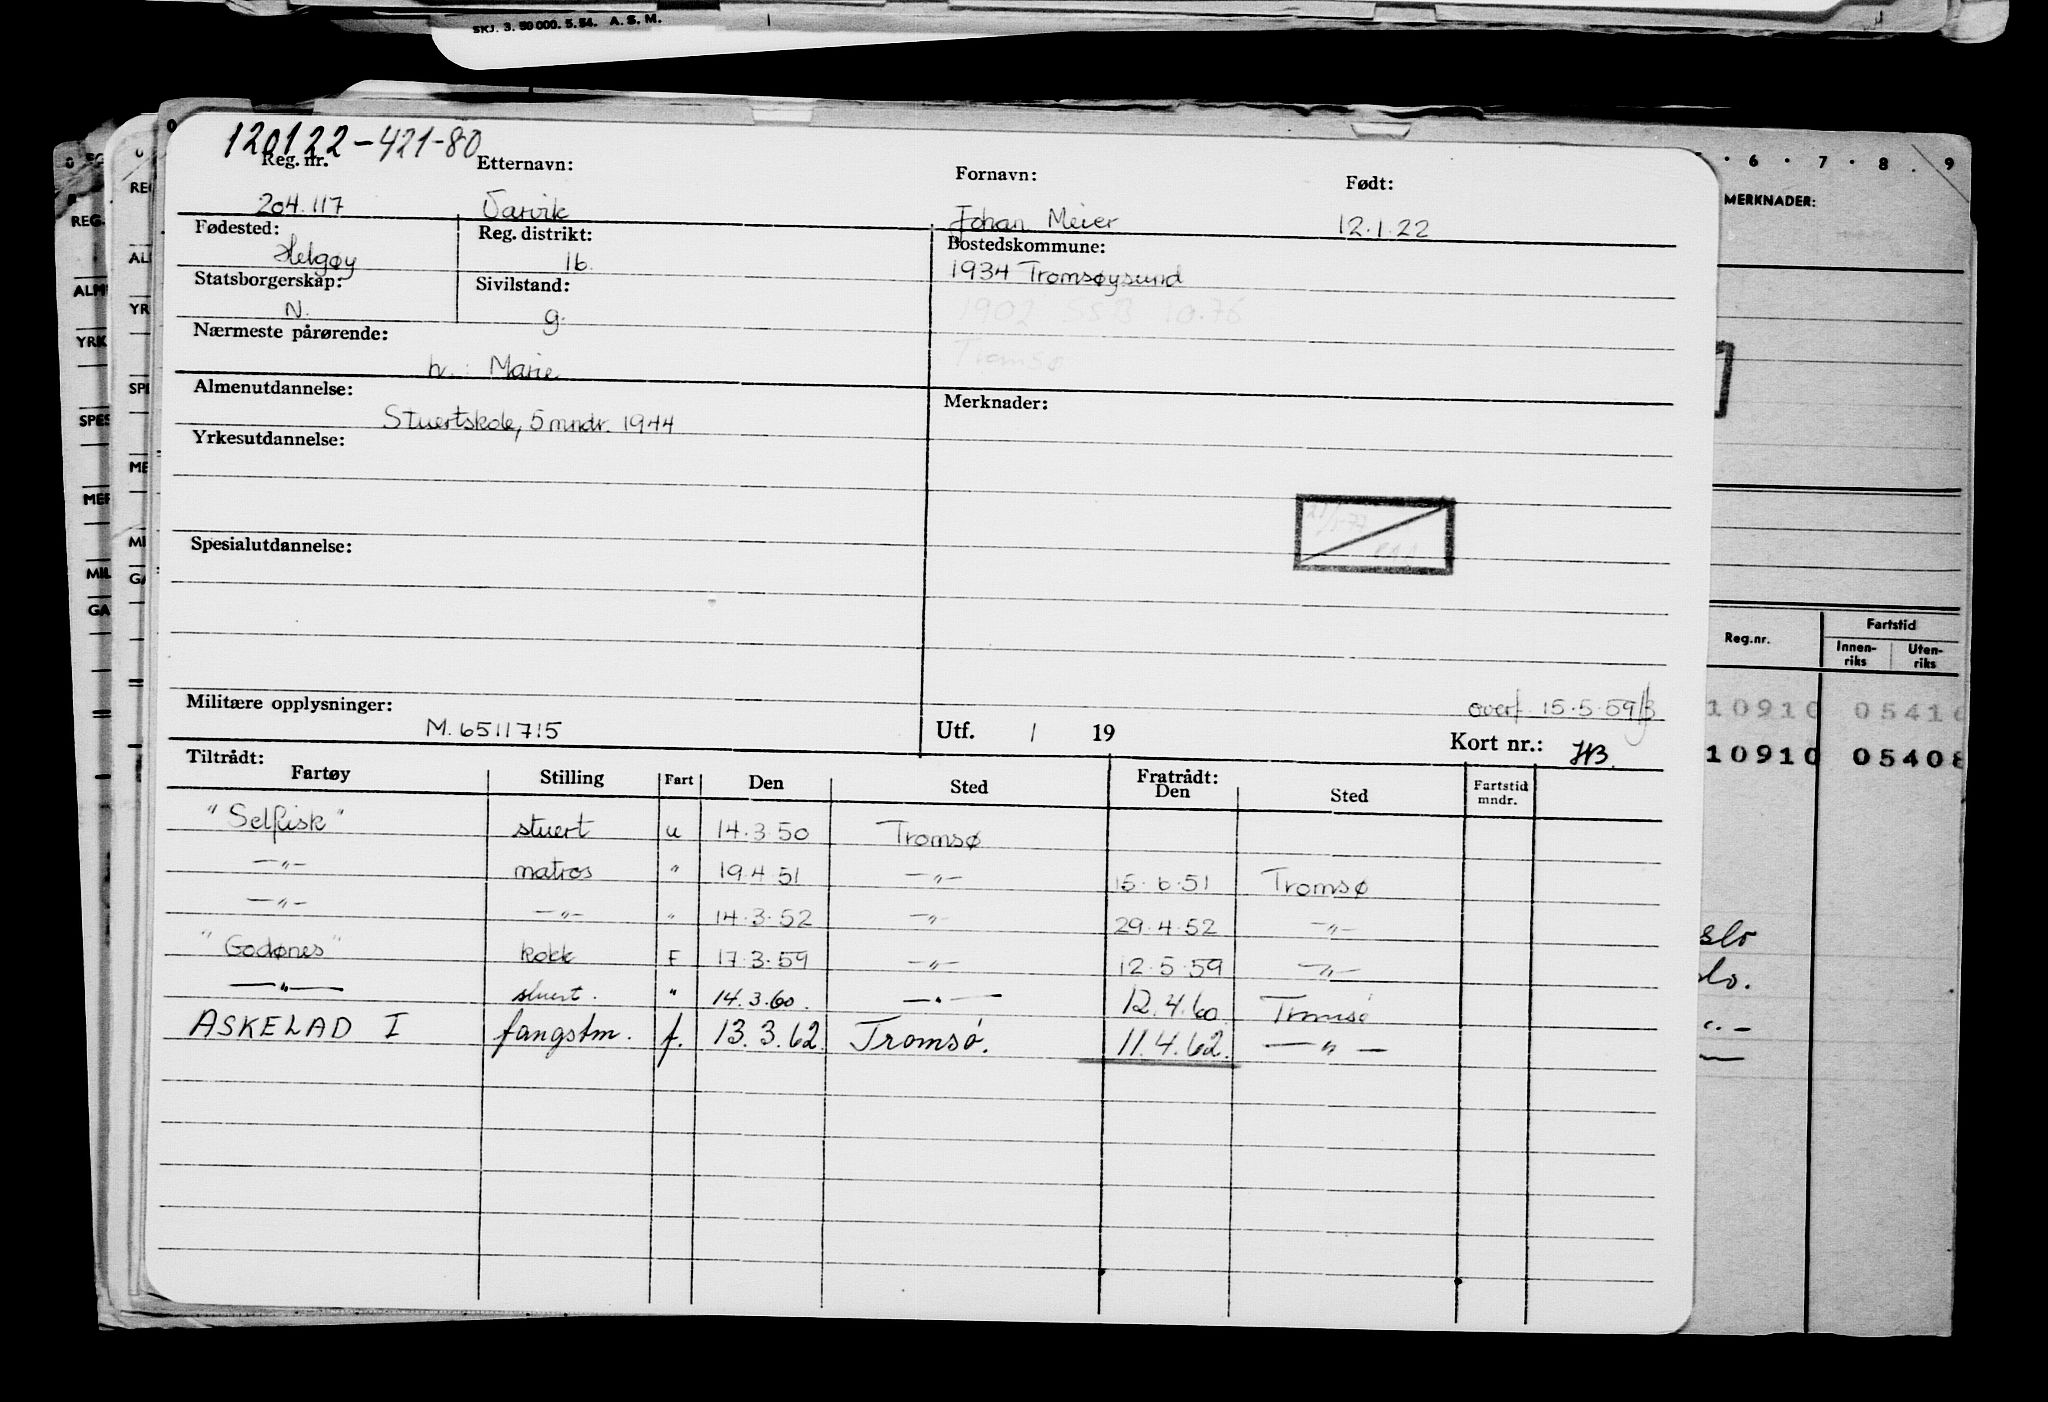 SKJ. 3. 50 000. 5. 54. A. S. M.
120122-421-80
Reg. nr. Etternavn: Fornavn: Født:
204.117 Varvik Johan Meier 12.1.22
Fødested: Reg. distrikt: Bostedskommune:
Helgøy 1b. 1934 Tromsøysund
Statsborgerskap: Sivilstand:
N. g. 1902 SSB 10.76
Nærmeste pårørende: Tromsø
h.: Marie
Almenutdannelse: Merknader:
Stuertskole, 5 mndr. 1944
Yrkesutdannelse:
Spesialutdannelse:
Militære opplysninger: overf. 15.5.59
M. 6511715 Utf. / 19 Kort nr.: HB.
Tiltrådt: Fratrådt:
Fartøy Stilling Fart Den Sted Den Sted Fartstid mndr.
"Selfisk" stuert u 14.3.50 Tromsø
—"— matros " 19.4.51 —"— 15.6.51 Tromsø
—"— —"— " 14.3.52 —"— 29.4.52 —"—
"Godønes" kokk F 17.3.59 —"— 12.5.59 —"—
—"— stuert. " 14.3.60. —"— 12.4.60. Tromsø
ASKELAD I fangstm. f. 13.3.62. Tromsø. 11.4.62. —"—
6 · 7 · 8 . 9
MERKNADER:
Reg.nr. Fartstid
Innen-riks Uten-riks
10910 05410
10910 05408
slo
lo.
REG.
ALM
YRK
SPES
MER
MIL
GA
REG
AL
YR
SPE
ME
MI
GA